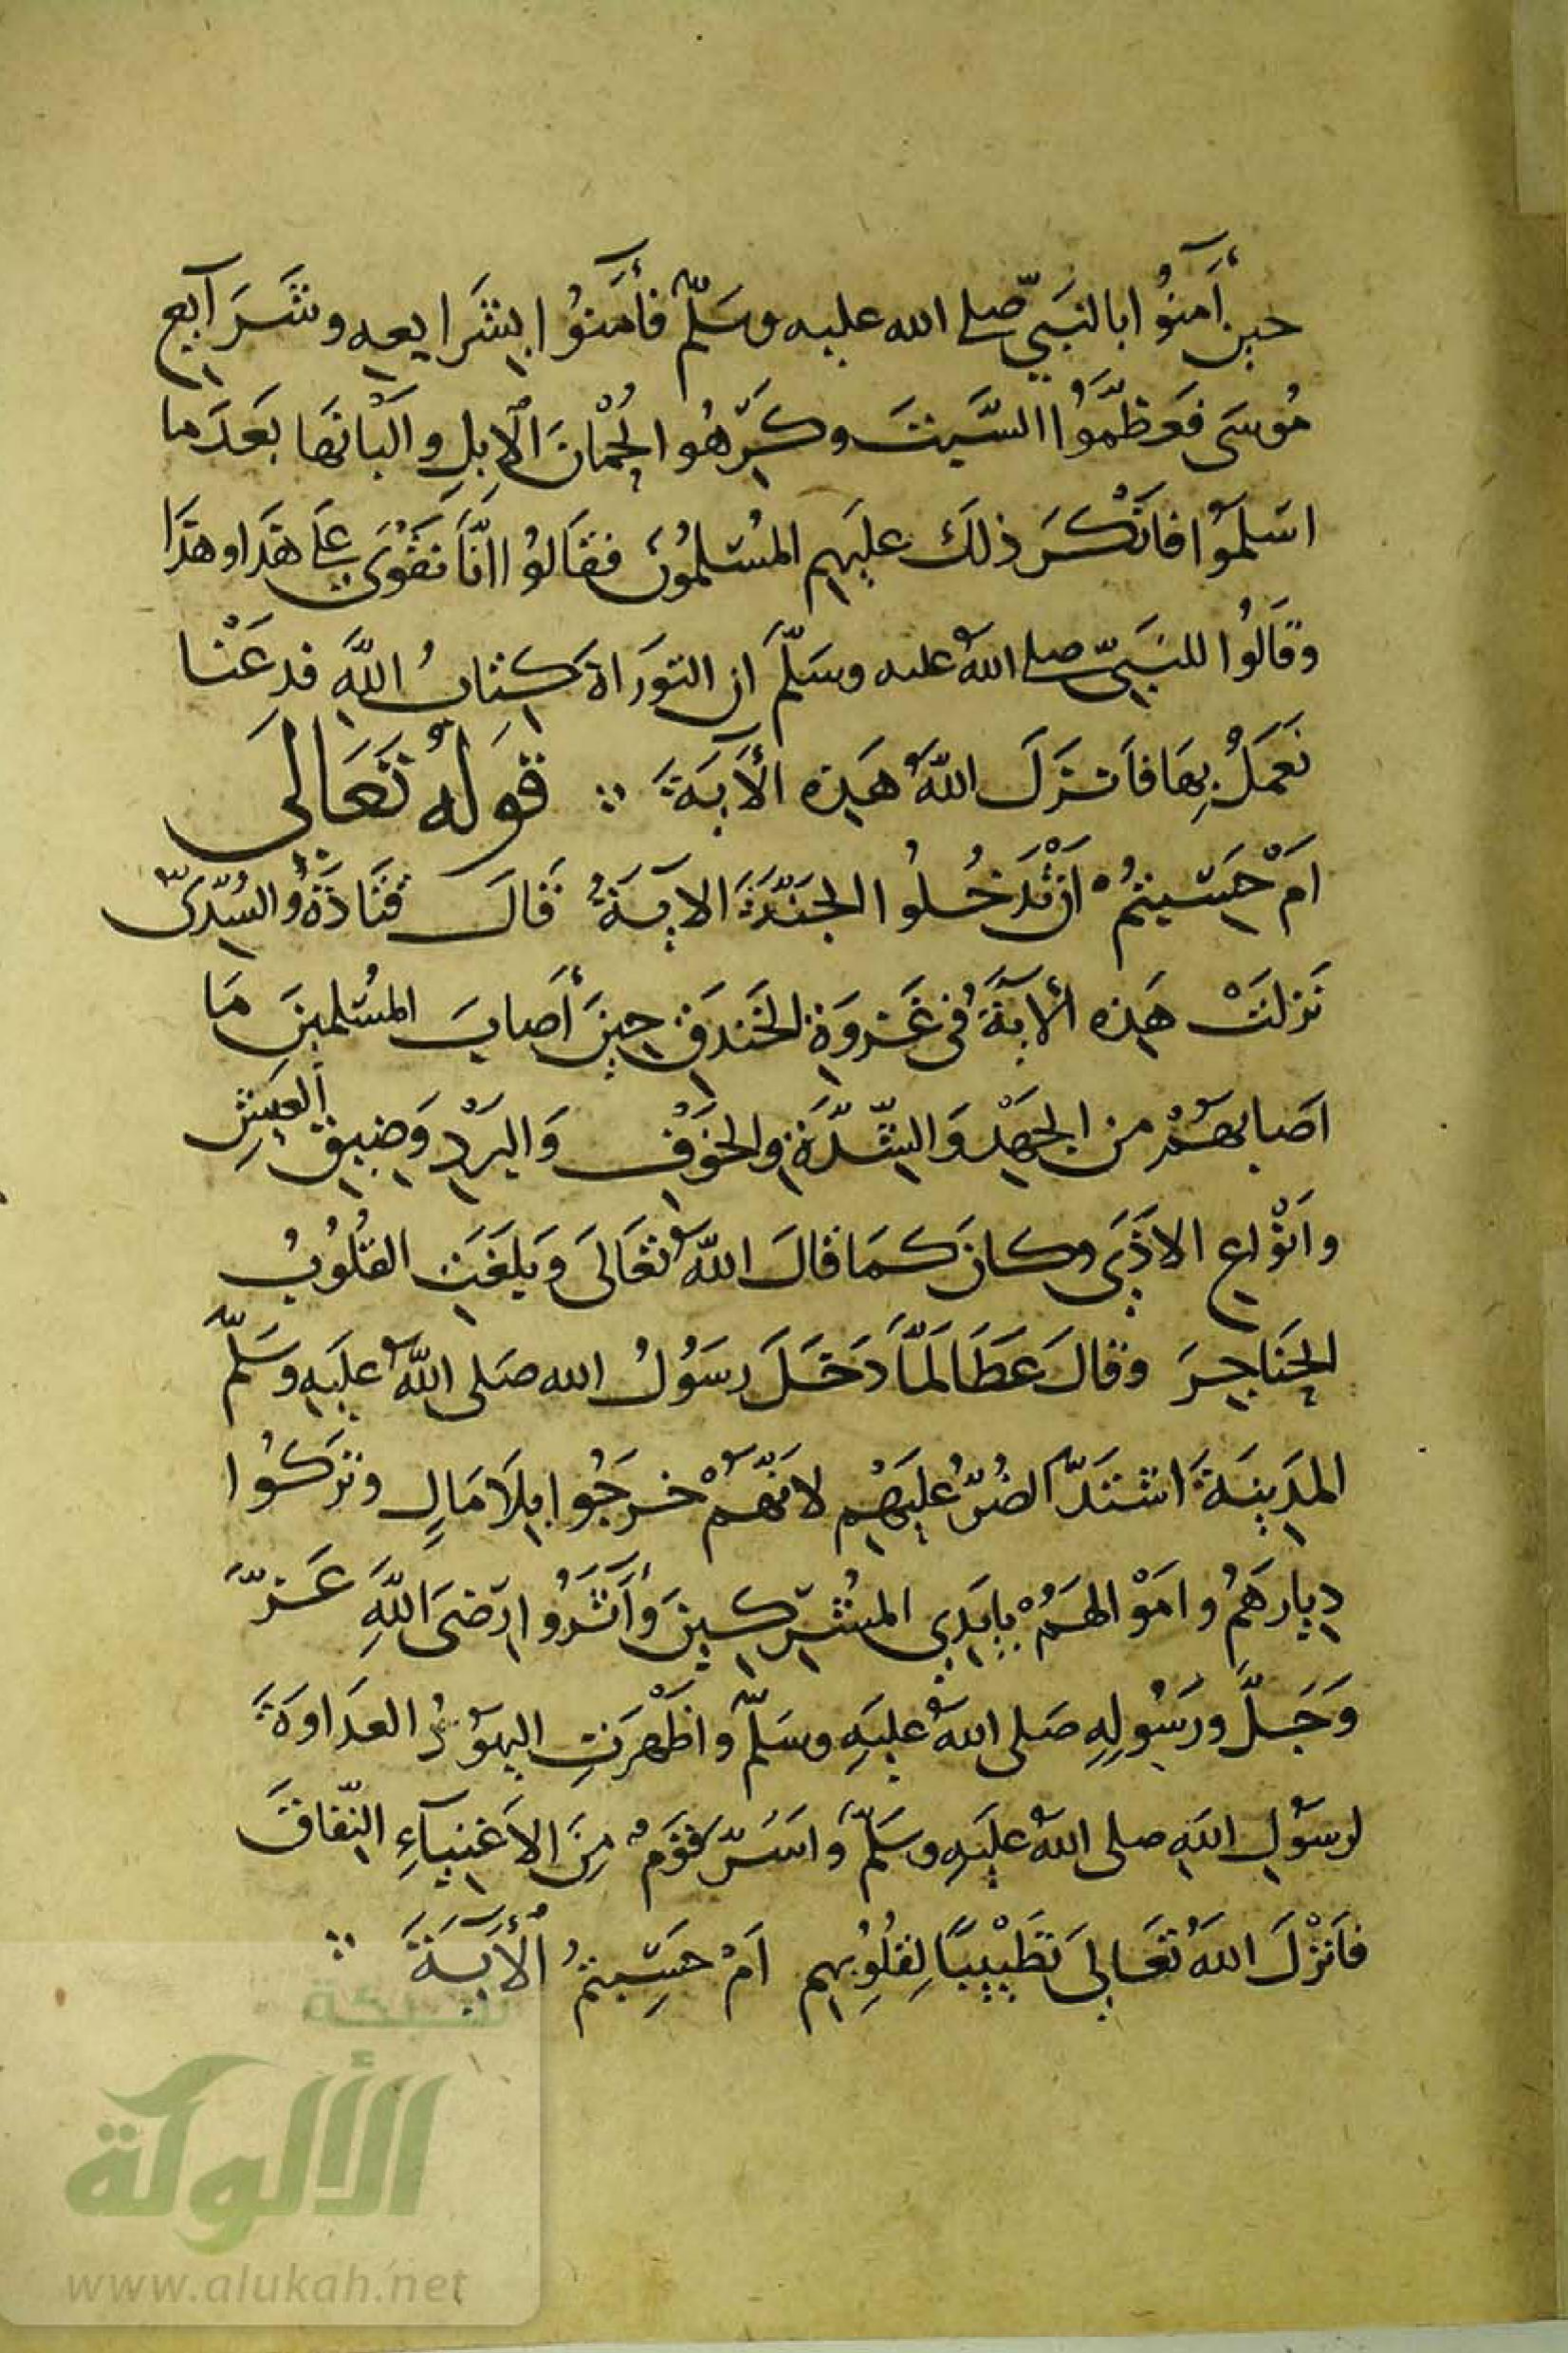 حين أَمنُوا بالنَبيّ صلى الله عليه وسَلّم فأمَنوُا بشَرايعهِ وشَرَآيع
مُوسَى فَعَظّمَوُا السَّبتَ وكَرّهُوا لُحْمانَ الاِبلِ وَالَبْانَها بَعدَما
اسَلَموُا فانْكَرَ ذلكَ عليَهم المُسْلمُونَ فقَالوُا انّاَ نَقْوَى عَلى هَذا وهَذَا
وقَالُوا للنبَيّ صلى اللهُ عليه وسَلّمَ ان التورَاةَ كِتابُ اللَّهِ فدعَنْا
نَعمَلُ بِهَا فاَنزَلَ اللّهُ هَذِه الأيَةَ ∴ قوَلهُ تَعَالىَ
امَ حَسْبتمُ انْ تَدخُلُوا الجَنّةَ الايةُ قَالَ قتَادَةُ والسُدّىّ
نَزلَتْ هَذِه الأيةَُ فى غَزوَةِ الخَندَقِ حِينَ أصابَ المسُلمينَ مَا
اصَابهَمُ من الجَهْدِ وَالشّدَّةِ وَالخَوفِ وَالبَرْدِ وَضِيقِ العَيشِ
وانَوْاعِ الاَذَى وكانَ كمَا قالَ اللّهُ تعَالىَ وَبَلغَتِ القُلُوبُ
الحَنَاجِرَ وقالَ عَطَا لَمّاَ دَخَلَ رسَوُلُ الله صَلى اللّهُ عليَهِ وسَلّمَ
المَدِينَةَ اشتَدّ الضُرّ عُليَهْمِ لانَهُّمْ خرَجُوا بلاَ مَالٍ وترَكوُا
دِيارهَمُ وامَوْالهَمُ بايَدِي المشُرِكينَ وَأثَرَوُا رِضَى اللَّهِ عَزّ
وَجَلَّ ورَسُولِهِ صَلى اللهُ عليَهِ وسَلّمَ واظَهْرَتِ اليهَوُدُ العدَاوَةَ
لرسَوُلِ اللهِ صلى اللهُ عليَهِ وسَلّمَ وَاسَرّ قوَمُ مِنَ الاَغنِيآءِ النِّفاقَ
فاَنزْلَ اللهُ تعَالىَ تطَيْيبًا لِقلُوُبِهِم امَ حَسِبْتمُ الأيَةَ ∴
شبكة
الألوكة
www.alukah.net